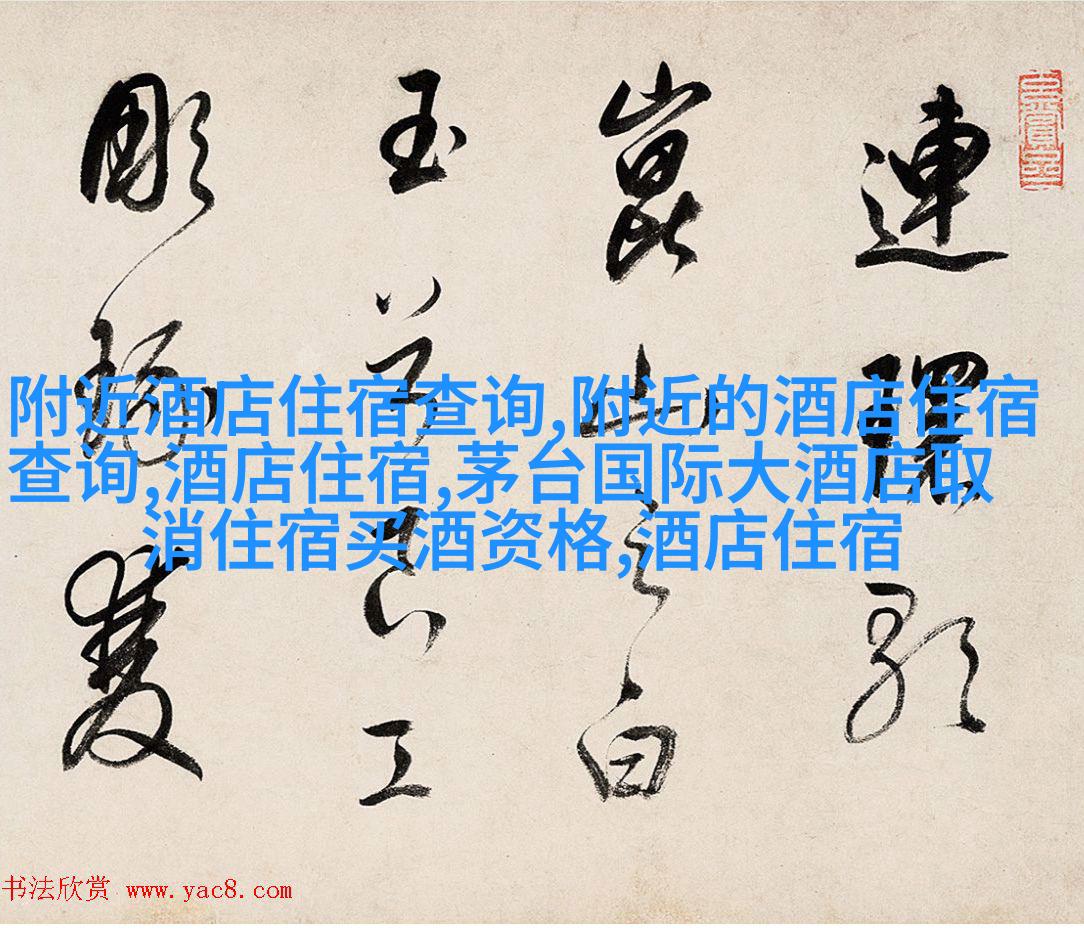 連環歌
崑山之白
玉兮良工
彫琢雙
附近酒店住宿查询,附近的酒店住宿
查询,酒店住宿,茅台国际大酒店取
消住宿买酒资格,酒店住宿
书法欣赏 www.yac8.com